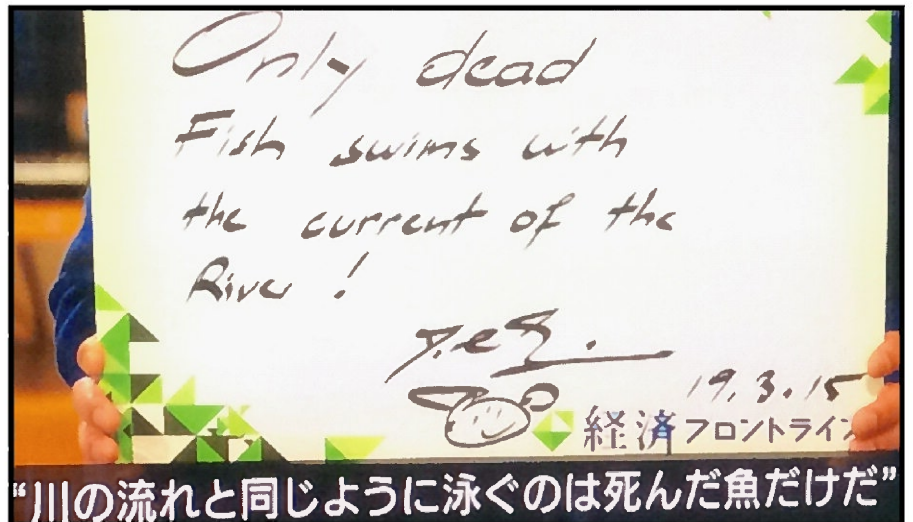 Only dead
Fish swims with
the current of the
River !
19.3.15
経済フロントライン
“川の流れと同じように泳ぐのは死んだ魚だけだ”